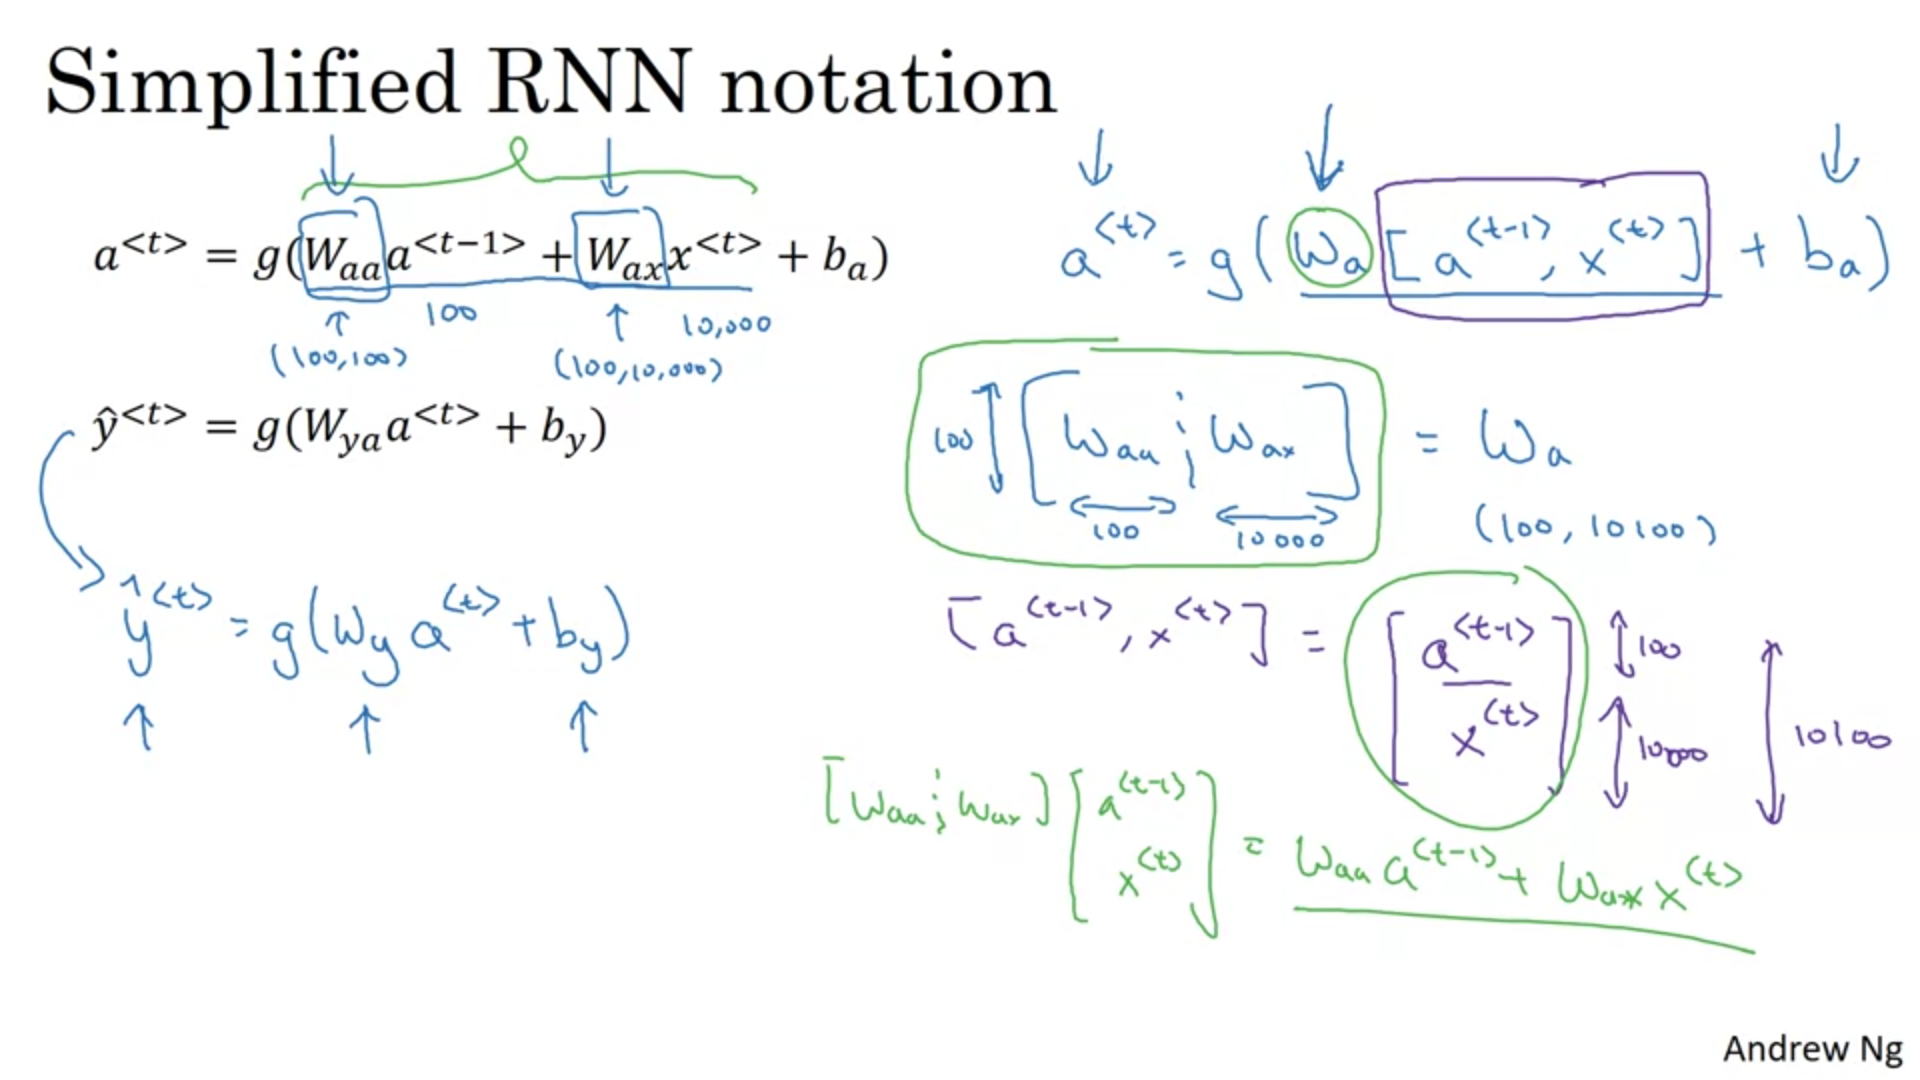 Simplified RNN notation
a<t> = g(Waa a<t−1> + Wax x<t> + ba)
100 10,000
(100,100) (100,10,000)
ŷ<t> = g(Wya a<t> + by)
ŷ<t> = g(Wy a<t> + by)
a<t> = g(Wa [a<t-1>, x<t>] + ba)
100 [Waa ¦ Wax] = Wa
100 10000
(100, 10100)
[a<t-1>, x<t>] = [a<t-1>
x<t>] 100
10000
10100
[Waa ¦ Wax] [a<t-1>
x<t>] = Waa a<t-1> + Wax x<t>
Andrew Ng